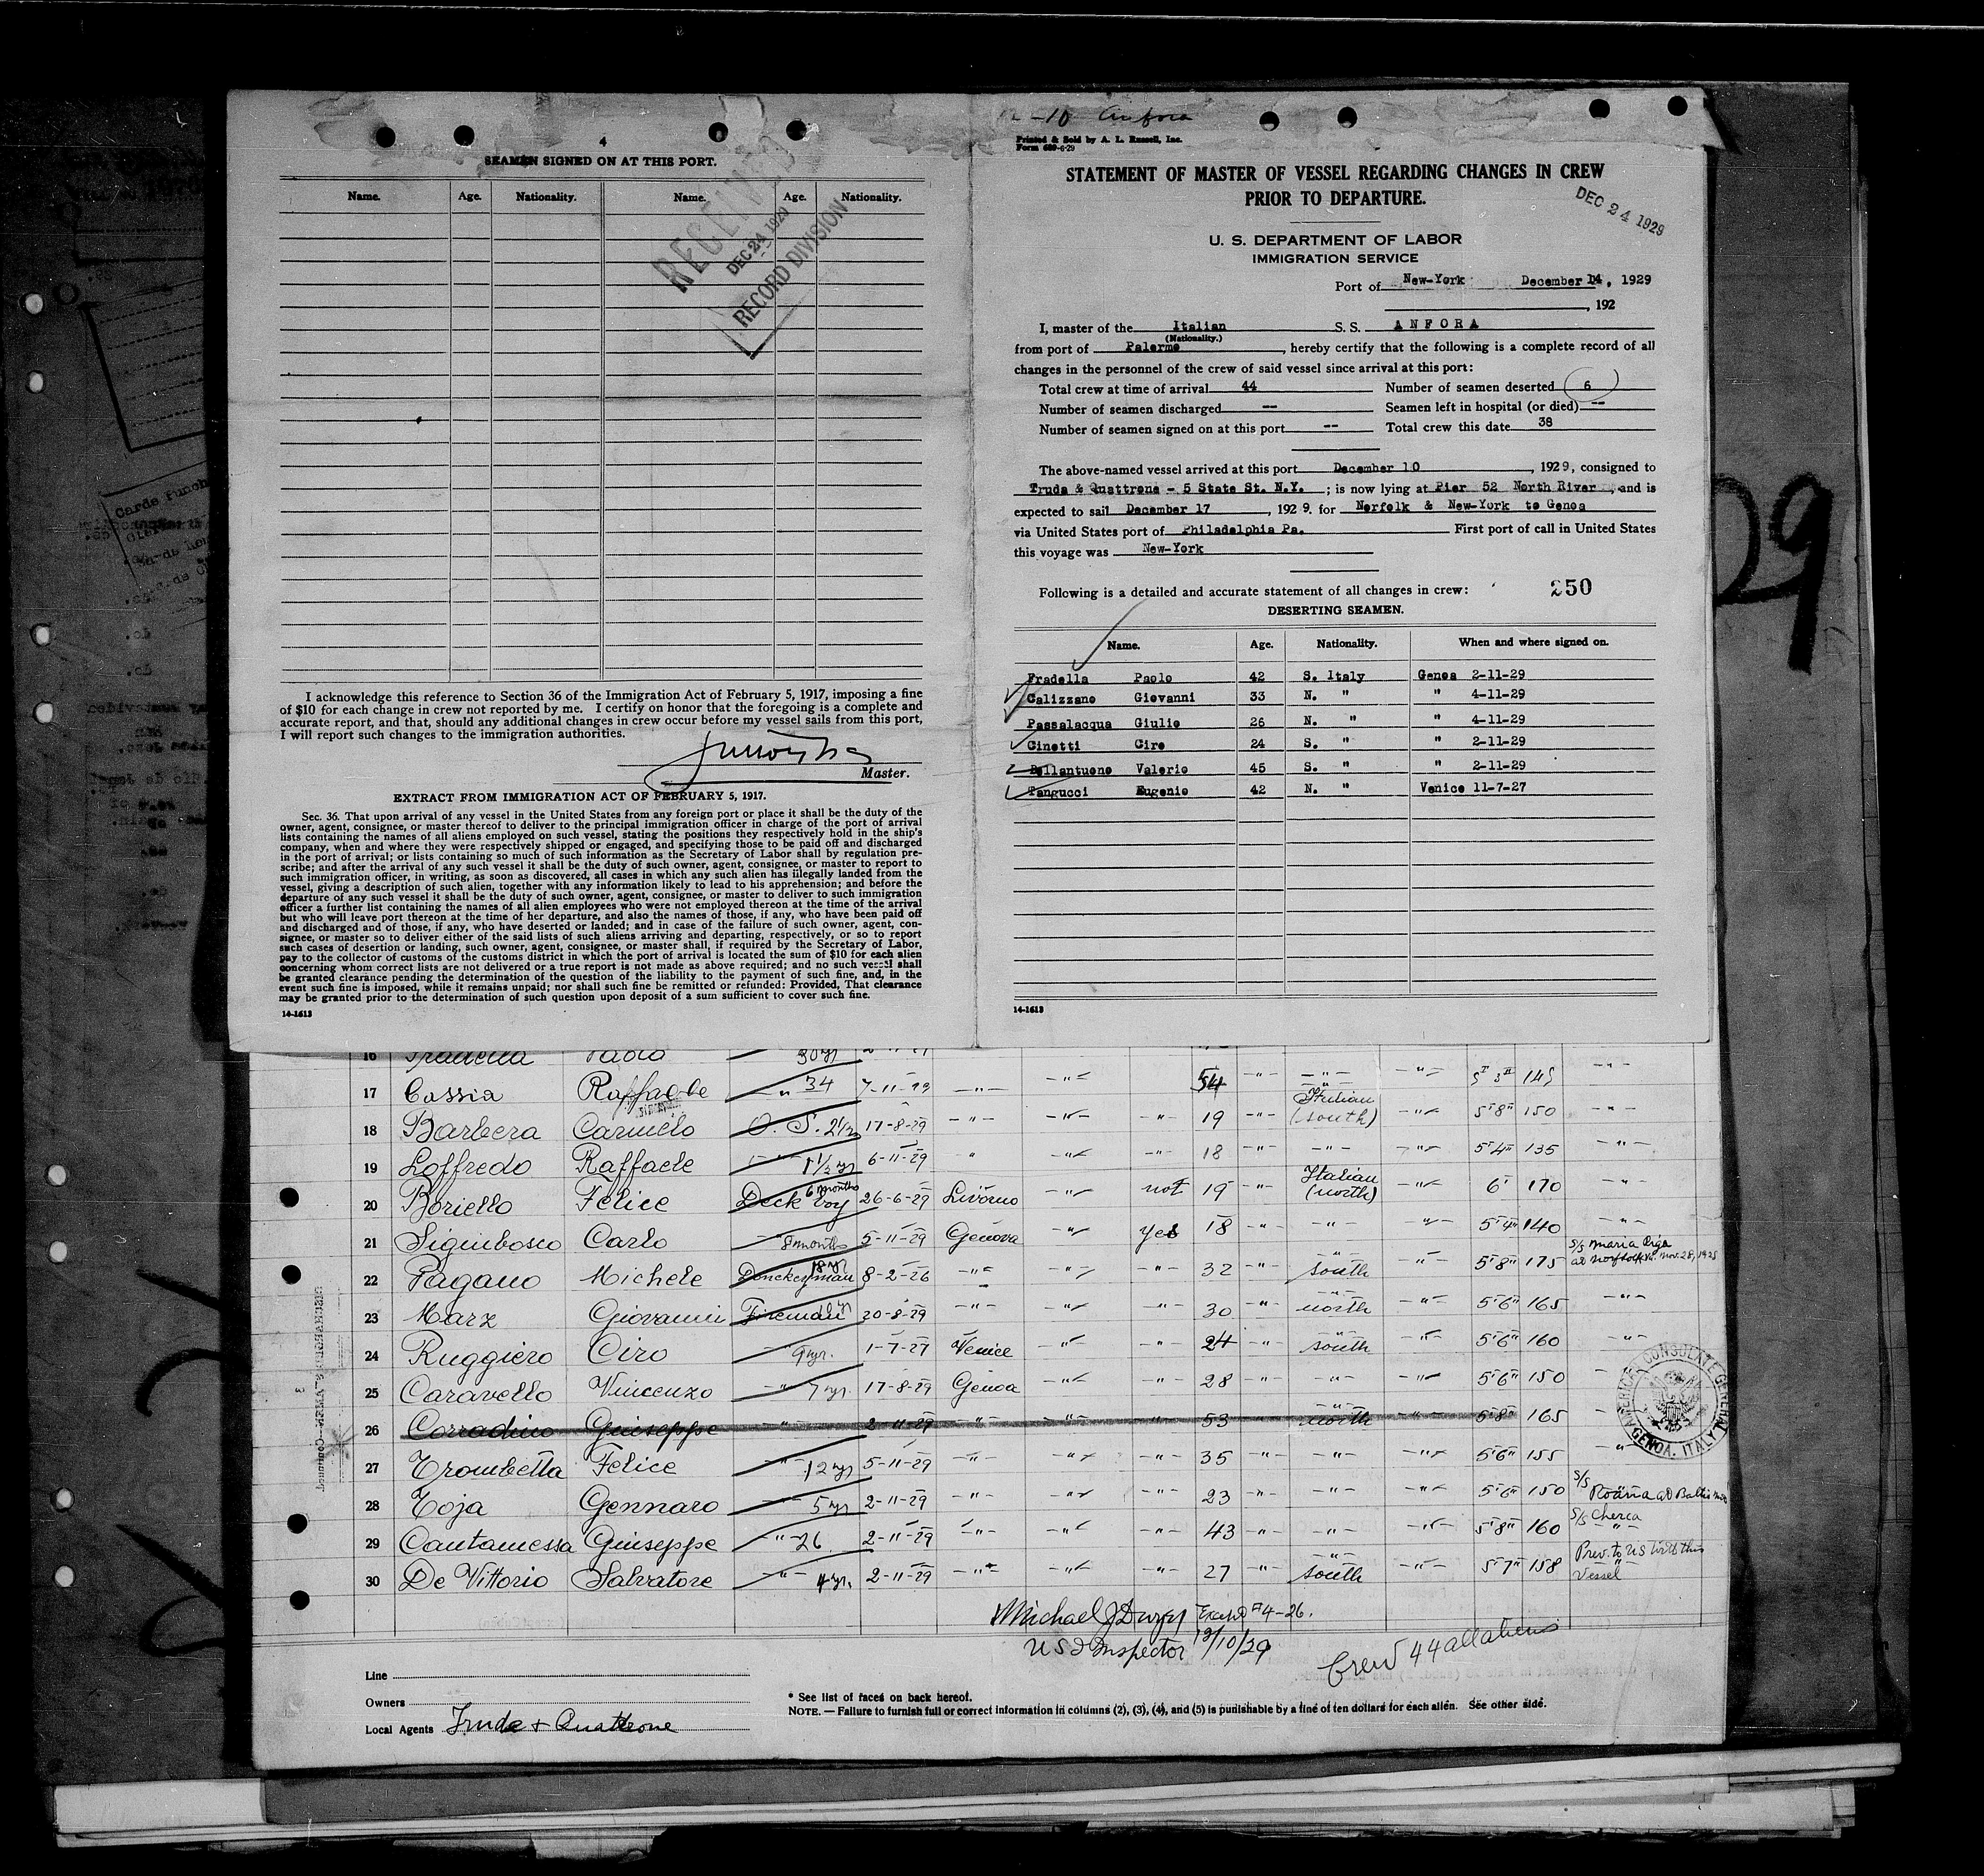 4
SEAMEN SIGNED ON AT THIS PORT.
Name. Age. Nationality. Name. Age. Nationality.
RECEIVED
DEC 24 1929
RECORD DIVISION
I acknowledge this reference to Section 36 of the Immigration Act of February 5, 1917, imposing a fine
of $10 for each change in crew not reported by me. I certify on honor that the foregoing is a complete and
accurate report, and that, should any additional changes in crew occur before my vessel sails from this port,
I will report such changes to the immigration authorities.
Master.
EXTRACT FROM IMMIGRATION ACT OF FEBRUARY 5, 1917.
Sec. 36. That upon arrival of any vessel in the United States from any foreign port or place it shall be the duty of the
owner, agent, consignee, or master thereof to deliver to the principal immigration officer in charge of the port of arrival
lists containing the names of all aliens employed on such vessel, stating the positions they respectively hold in the ship's
company, when and where they were respectively shipped or engaged, and specifying those to be paid off and discharged
in the port of arrival; or lists containing so much of such information as the Secretary of Labor shall by regulation pre-
scribe; and after the arrival of any such vessel it shall be the duty of such owner, agent, consignee, or master to report to
such immigration officer, in writing, as soon as discovered, all cases in which any such alien has illegally landed from the
vessel, giving a description of such alien, together with any information likely to lead to his apprehension; and before the
departure of any such vessel it shall be the duty of such owner, agent, consignee, or master to deliver to such immigration
officer a further list containing the names of all alien employees who were not employed thereon at the time of the arrival
but who will leave port thereon at the time of her departure, and also the names of those, if any, who have been paid off
and discharged and of those, if any, who have deserted or landed; and in case of the failure of such owner, agent, con-
signee, or master so to deliver either of the said lists of such aliens arriving and departing, respectively, or so to report
such cases of desertion or landing, such owner, agent, consignee, or master shall, if required by the Secretary of Labor,
pay to the collector of customs of the customs district in which the port of arrival is located the sum of $10 for each alien
concerning whom correct lists are not delivered or a true report is not made as above required; and no such vessel shall
be granted clearance pending the determination of the question of the liability to the payment of such fine, and, in the
event such fine is imposed, while it remains unpaid; nor shall such fine be remitted or refunded: Provided, That clearance
may be granted prior to the determination of such question upon deposit of a sum sufficient to cover such fine.
14-1613
12-10 Anfora
Printed & Sold by A. L. Russell, Inc.
Form 689-6-29
STATEMENT OF MASTER OF VESSEL REGARDING CHANGES IN CREW
PRIOR TO DEPARTURE.
DEC 24 1929
U. S. DEPARTMENT OF LABOR
IMMIGRATION SERVICE
Port of New-York December 14, 1929
, 192
I, master of the Italian S. S. ANFORA
(Nationality.)
from port of Palermo, hereby certify that the following is a complete record of all
changes in the personnel of the crew of said vessel since arrival at this port:
Total crew at time of arrival 44 Number of seamen deserted 6
Number of seamen discharged -- Seamen left in hospital (or died) --
Number of seamen signed on at this port -- Total crew this date 38
The above-named vessel arrived at this port December 10, 1929, consigned to
Truda & Quattrone - 5 State St. N.Y. ; is now lying at Pier 52 North River, and is
expected to sail December 17, 1929, for Norfolk & New-York to Genoa
via United States port of Philadelphia Pa. First port of call in United States
this voyage was New-York
Following is a detailed and accurate statement of all changes in crew: 250
DESERTING SEAMEN.
Name. Age. Nationality. When and where signed on.
Fradella Paolo 42 S. Italy Genoa 2-11-29
Calizzano Giovanni 33 N. " " 4-11-29
Passalacqua Giulio 26 N. " " 4-11-29
Cinotti Ciro 24 S. " " 2-11-29
Bellantuono Valerio 45 S. " " 2-11-29
Tangucci Eugenio 42 N. " Venice 11-7-27
14-1613
16 Fradella Paolo 30 yr 2-11-29
17 Cassia Raffaele -"- 34 7-11-29 -"- -"- 54 -"- -"- -"- 5' 3" 145 -"-
18 Barbera Carmelo O. S. 2½ 17-8-29 -"- -"- -"- 19 -"- Italian (south) -"- 5'8" 150 -"-
19 Loffredo Raffaele -"- 1½ yr 6-11-29 " -"- -"- 18 -"- -"- -"- 5'4" 135 -"-
20 Boriello Felice Deck boy 6 months 26-6-29 Livorno -"- not 19 -"- Italian (north) -"- 6' 170 -"-
21 Sigimbosco Carlo -"- 8 months 5-11-29 Genova -"- yes 18 -"- -"- -"- 5'4" 140 -"-
22 Pagano Michele Donckeyman 18 yr 8-2-26 -"- -"- -"- 32 -"- south -"- 5'8" 175 S/S Maria Riga at Norfolk Va. Nov. 28, 1925
23 Marz Giovanni Fireman 10 yr 20-8-29 -"- -"- -"- 30 -"- north -"- 5'6" 165 -"-
24 Ruggiero Ciro -"- 9 yr. 1-7-27 Venice -"- -"- 24 -"- south -"- 5'6" 160 -"-
25 Caravello Vincenzo -"- 7 yr. 17-8-29 Genoa -"- -"- 28 -"- -"- -"- 5'6" 150 -
26 Corradino Giuseppe -"- 2-11-29 -"- -"- -"- 53 -"- north -"- 5'8" 165 -
27 Trombetta Felice -"- 12 yr 5-11-29 -"- -"- -"- 35 -"- -"- -"- 5'6" 155 -"-
28 Toja Gennaro -"- 5 yr 2-11-29 -"- -"- -"- 23 -"- -"- -"- 5'6" 150 S/S
29 Cantamessa Giuseppe -"- 26 2-11-29 -"- -"- -"- 43 -"- -"- -"- 5'8" 160 S/S Cherca -"-
30 De Vittorio Salvatore -"- 4 yr. 2-11-29 -"- -"- -"- 27 -"- south -"- 5'7" 158 Prev. to US with this Vessel
AMERICAN CONSULATE GENERAL
GENOA, ITALY
Michael J Dwyer Exam'd #4-26.
U S I Inspector 12/10/29
Crew 44 all aliens
Line
Owners
Local Agents Truda + Quattrone
* See list of faces on back hereof.
NOTE. — Failure to furnish full or correct information in columns (2), (3), (4), and (5) is punishable by a fine of ten dollars for each alien. See other side.
29